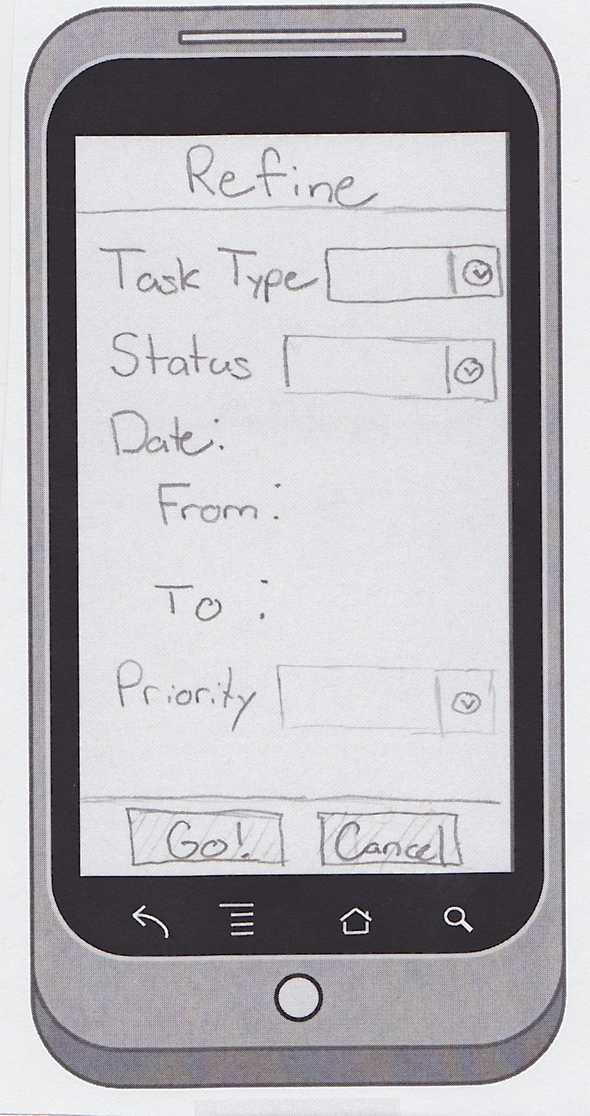 Refine
Task Type
Status
Date:
From:
To :
Priority
Go! Cancel